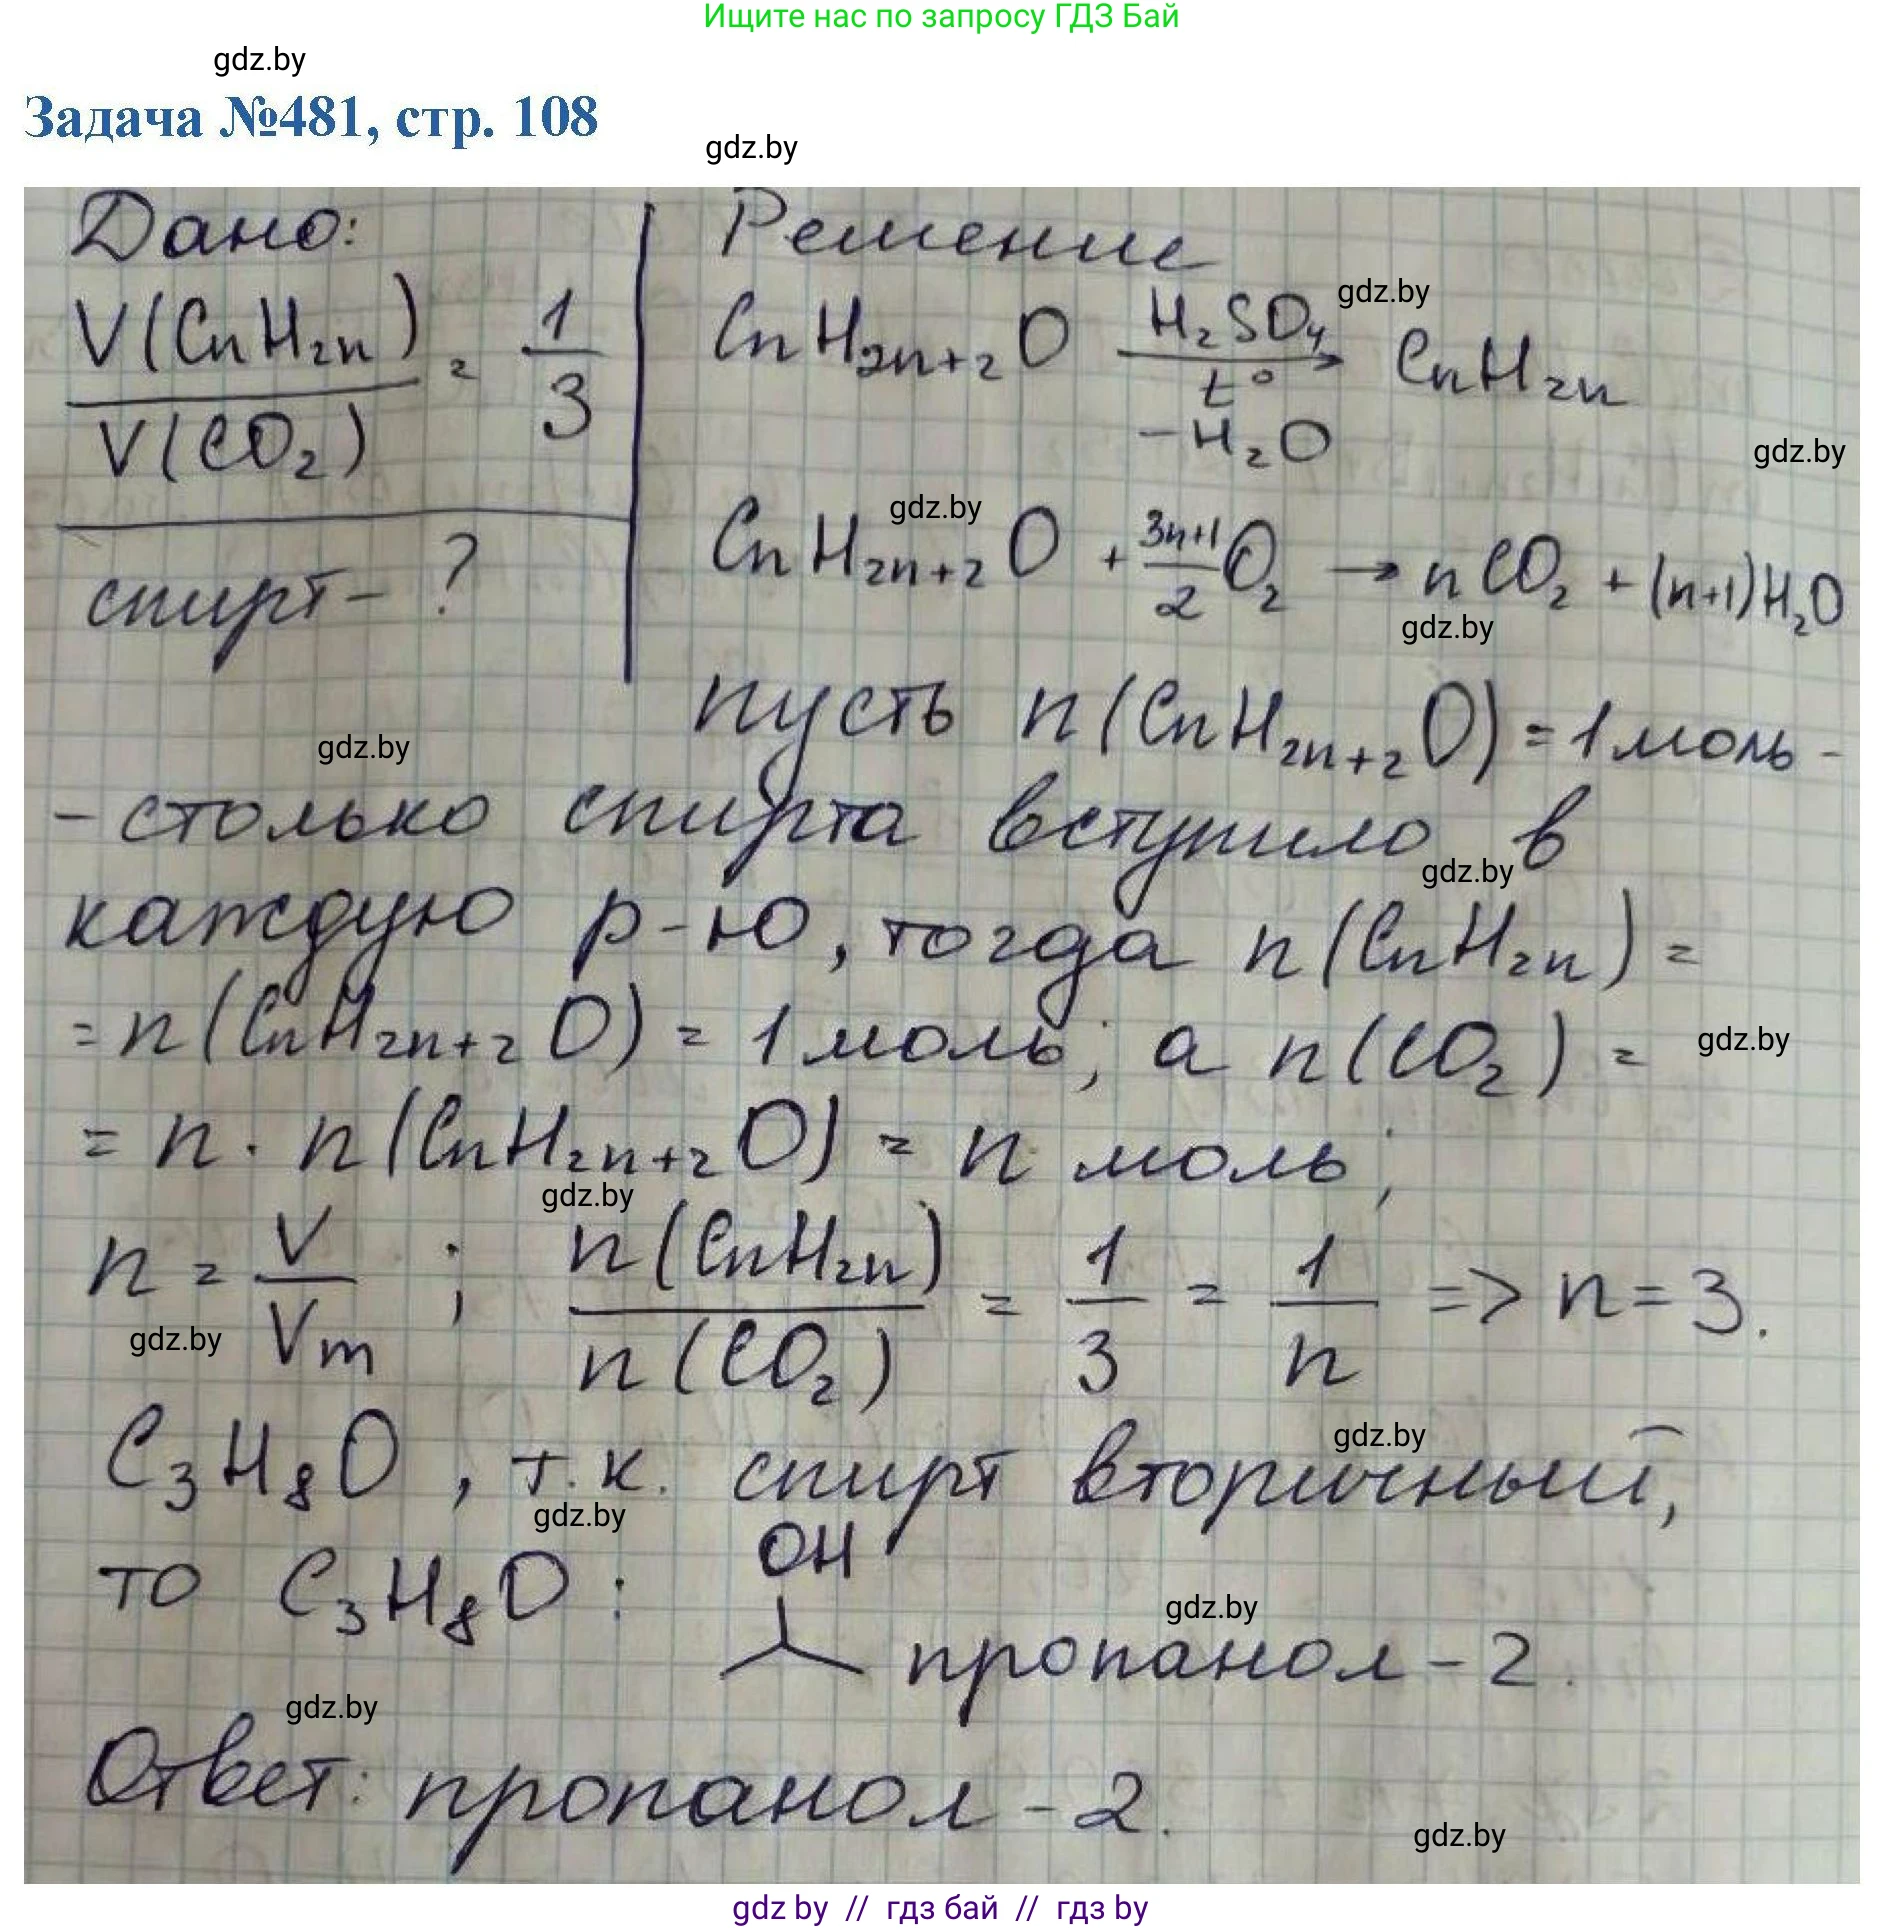 Ищите нас по запросу ГДЗ Бай
gdz.by
Задача №481, стр. 108
gdz.by
Дано:
V(CnH2n) / V(CO2) = 1/3
спирт - ?
Решение
gdz.by
CnH2n+2O H2SO4 → t° -H2O CnH2n
gdz.by
gdz.by
CnH2n+2O + 3n+1/2 O2 → nCO2 + (n+1)H2O
gdz.by
пусть n(CnH2n+2O) = 1 моль -
gdz.by
- столько спирта вступило в
gdz.by
каждую р-ю, тогда n(CnH2n) =
= n(CnH2n+2O) = 1 моль; а n(CO2) =
gdz.by
= n · n(CnH2n+2O) = n моль;
gdz.by
n = V/Vm ; n(CnH2n) / n(CO2) = 1/3 = 1/n => n = 3.
gdz.by
gdz.by
C3H8O, т.к. спирт вторичный,
gdz.by
OH
то C3H8O: пропанол - 2.
gdz.by
gdz.by
Ответ: пропанол - 2.
gdz.by
gdz by // гдз бай // гдз by